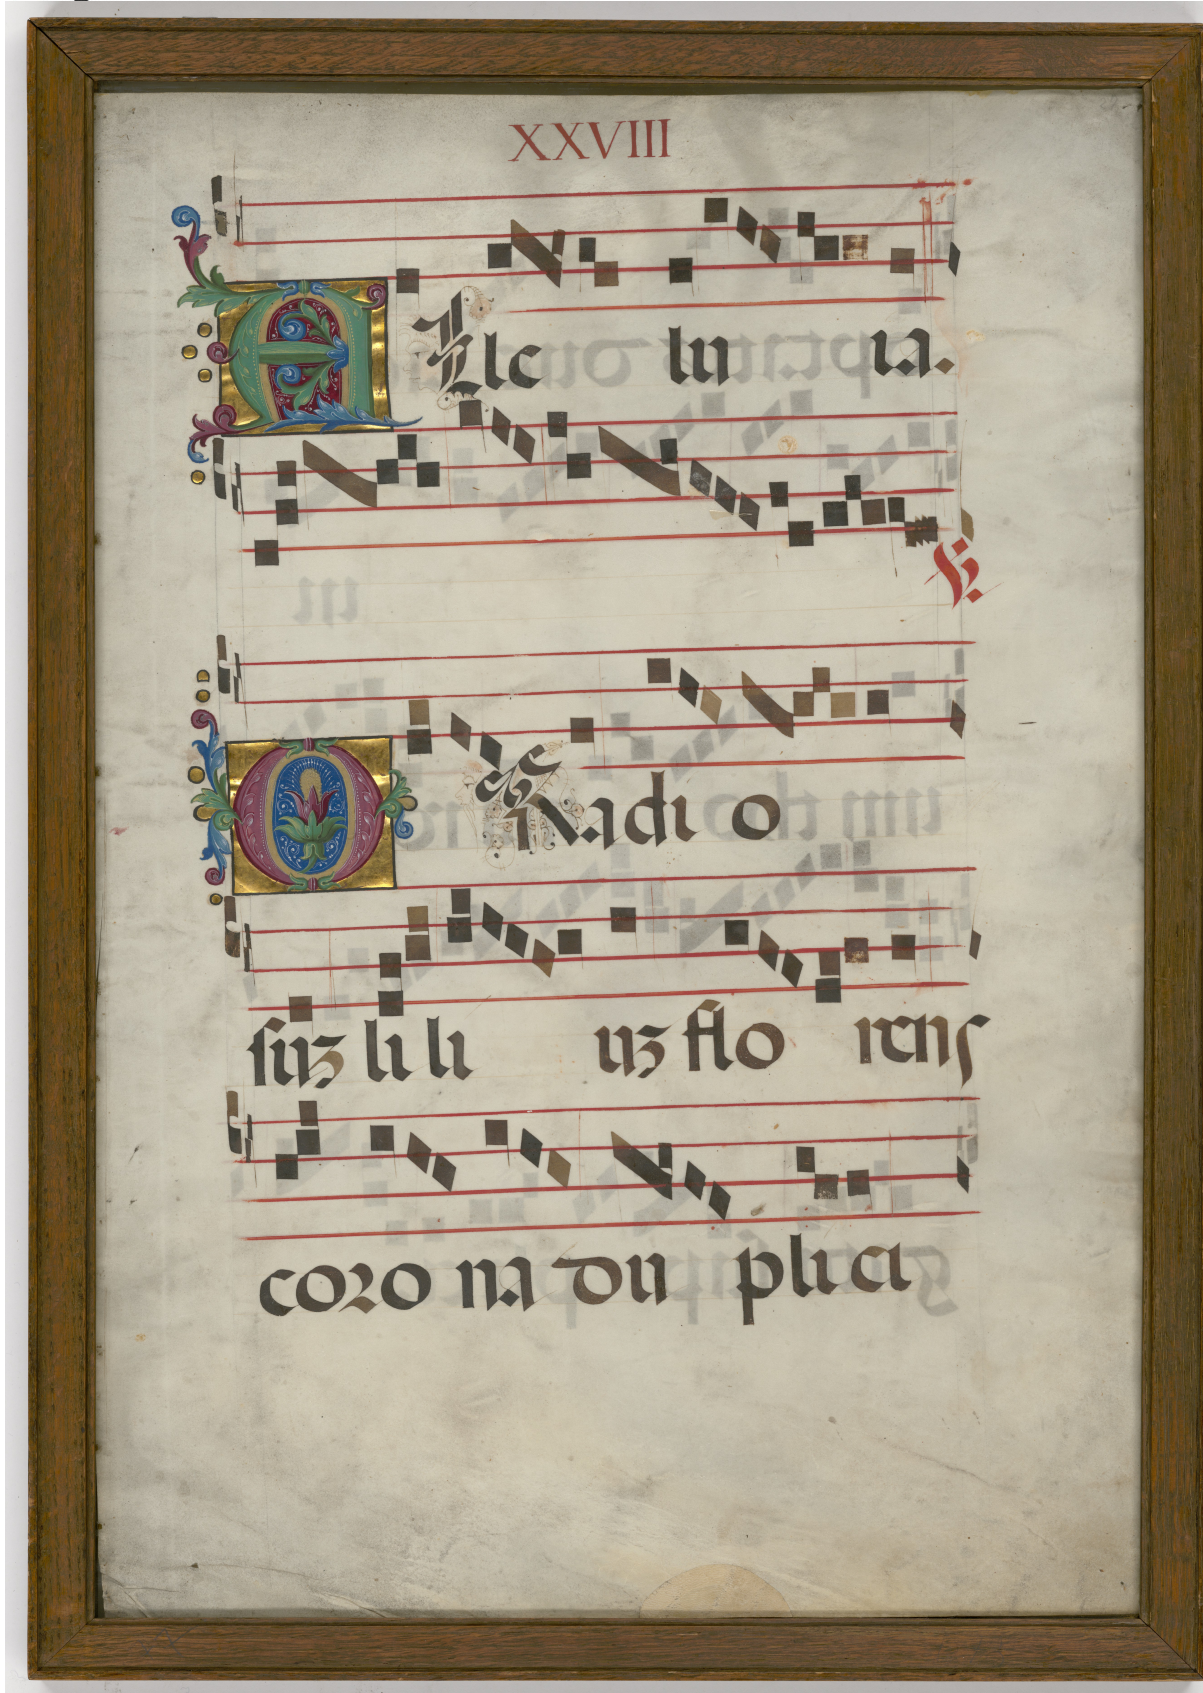 XXVIII
ALle lu ia.
℣
O Radi o
ſuʒ li li uʒ flo rens
coro na du plici